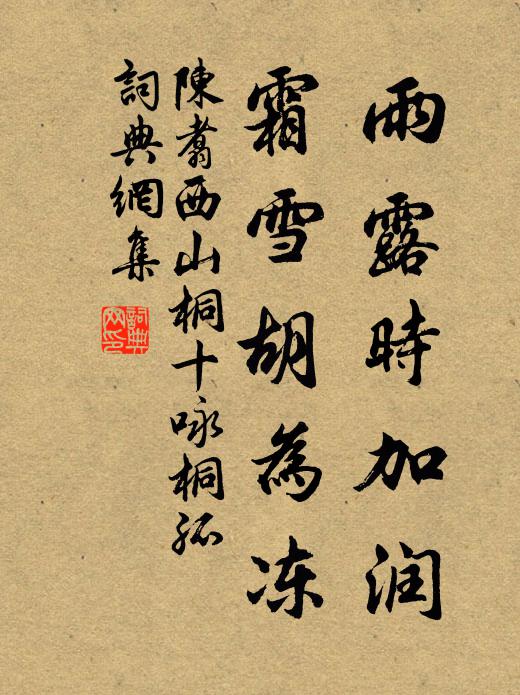 雨露時加润
霜雪胡為冻
陳翥西山桐十咏桐孤
詞典網集
詞典网印